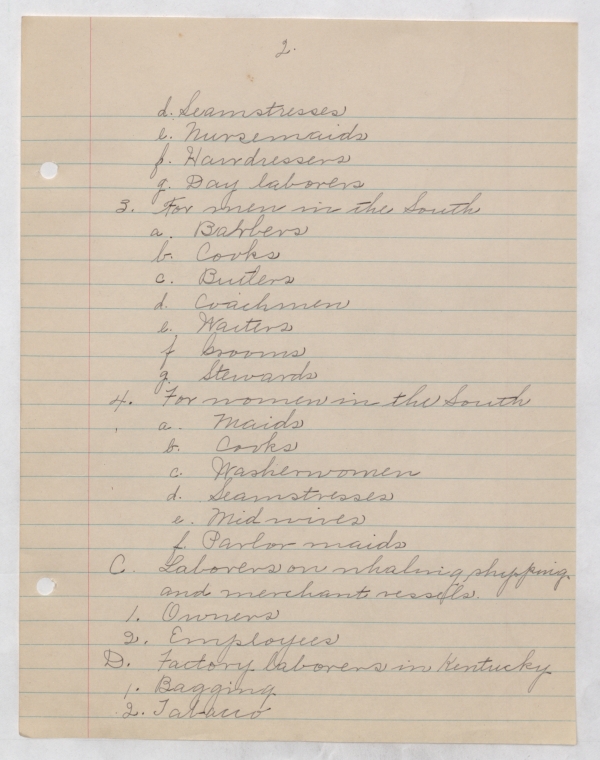 2.
d. Seamstresses
e. Nursemaids
f. Hairdressers
g. Day laborers
3. For men in the South
a. Barbers
b. Cooks
c. Butlers
d. Coachmen
e. Waiters
f. Grooms
g. Stewards
4. For women in the South
a. Maids
b. Cooks
c. Washerwomen
d. Seamstresses
e. Midwives
f. Parlor-maids
C. Laborers on whaling, shipping,
and merchant vessels.
1. Owners
2. Employees
D. Factory laborers in Kentucky
1. Bagging
2. Tabacco